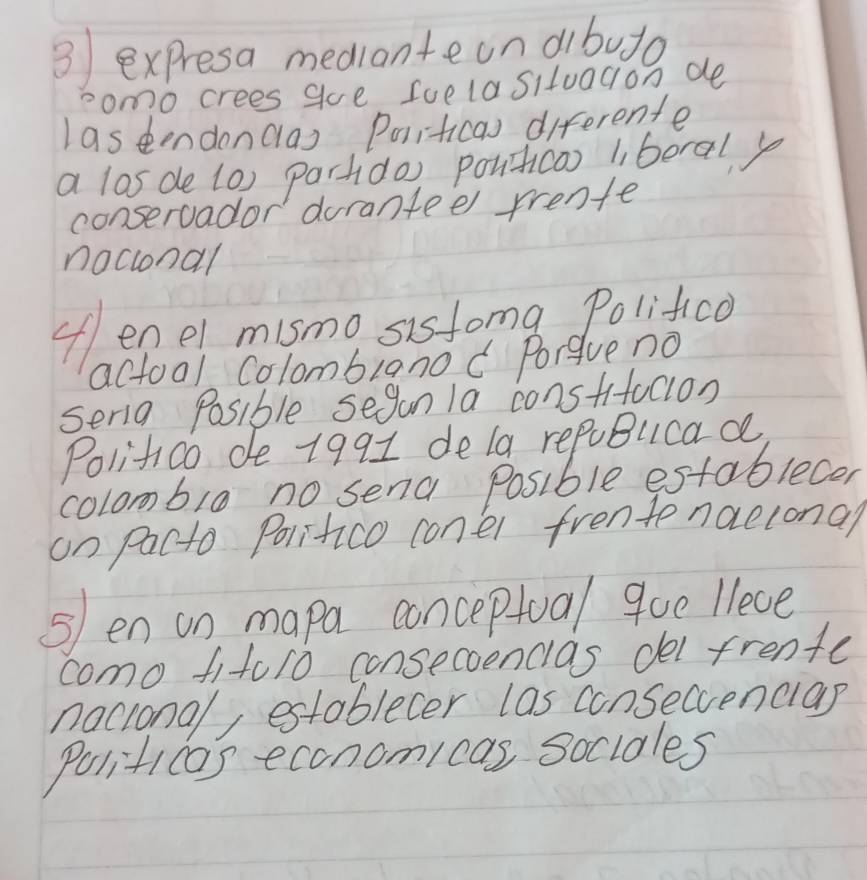 3) expresa mediante un dibujo
como crees que fue la situación de
las tendencias Politicas diferente
a las de los partidos politicos liberal, y
conservador durante el frente
nacional
4) en el mismo sistoma Politico
actual Colombiano ¿ Porque no
seria Posible segun la constitucion
Politico de 1991 de la repuBlica d
colombia no seria Posible establecer
un pacto Politico con el frente nacional
5) en un mapa conceptual que lleve
como titulo consecuencias del frente
nacional, establecer las consecuencias
Politicas economicas sociales